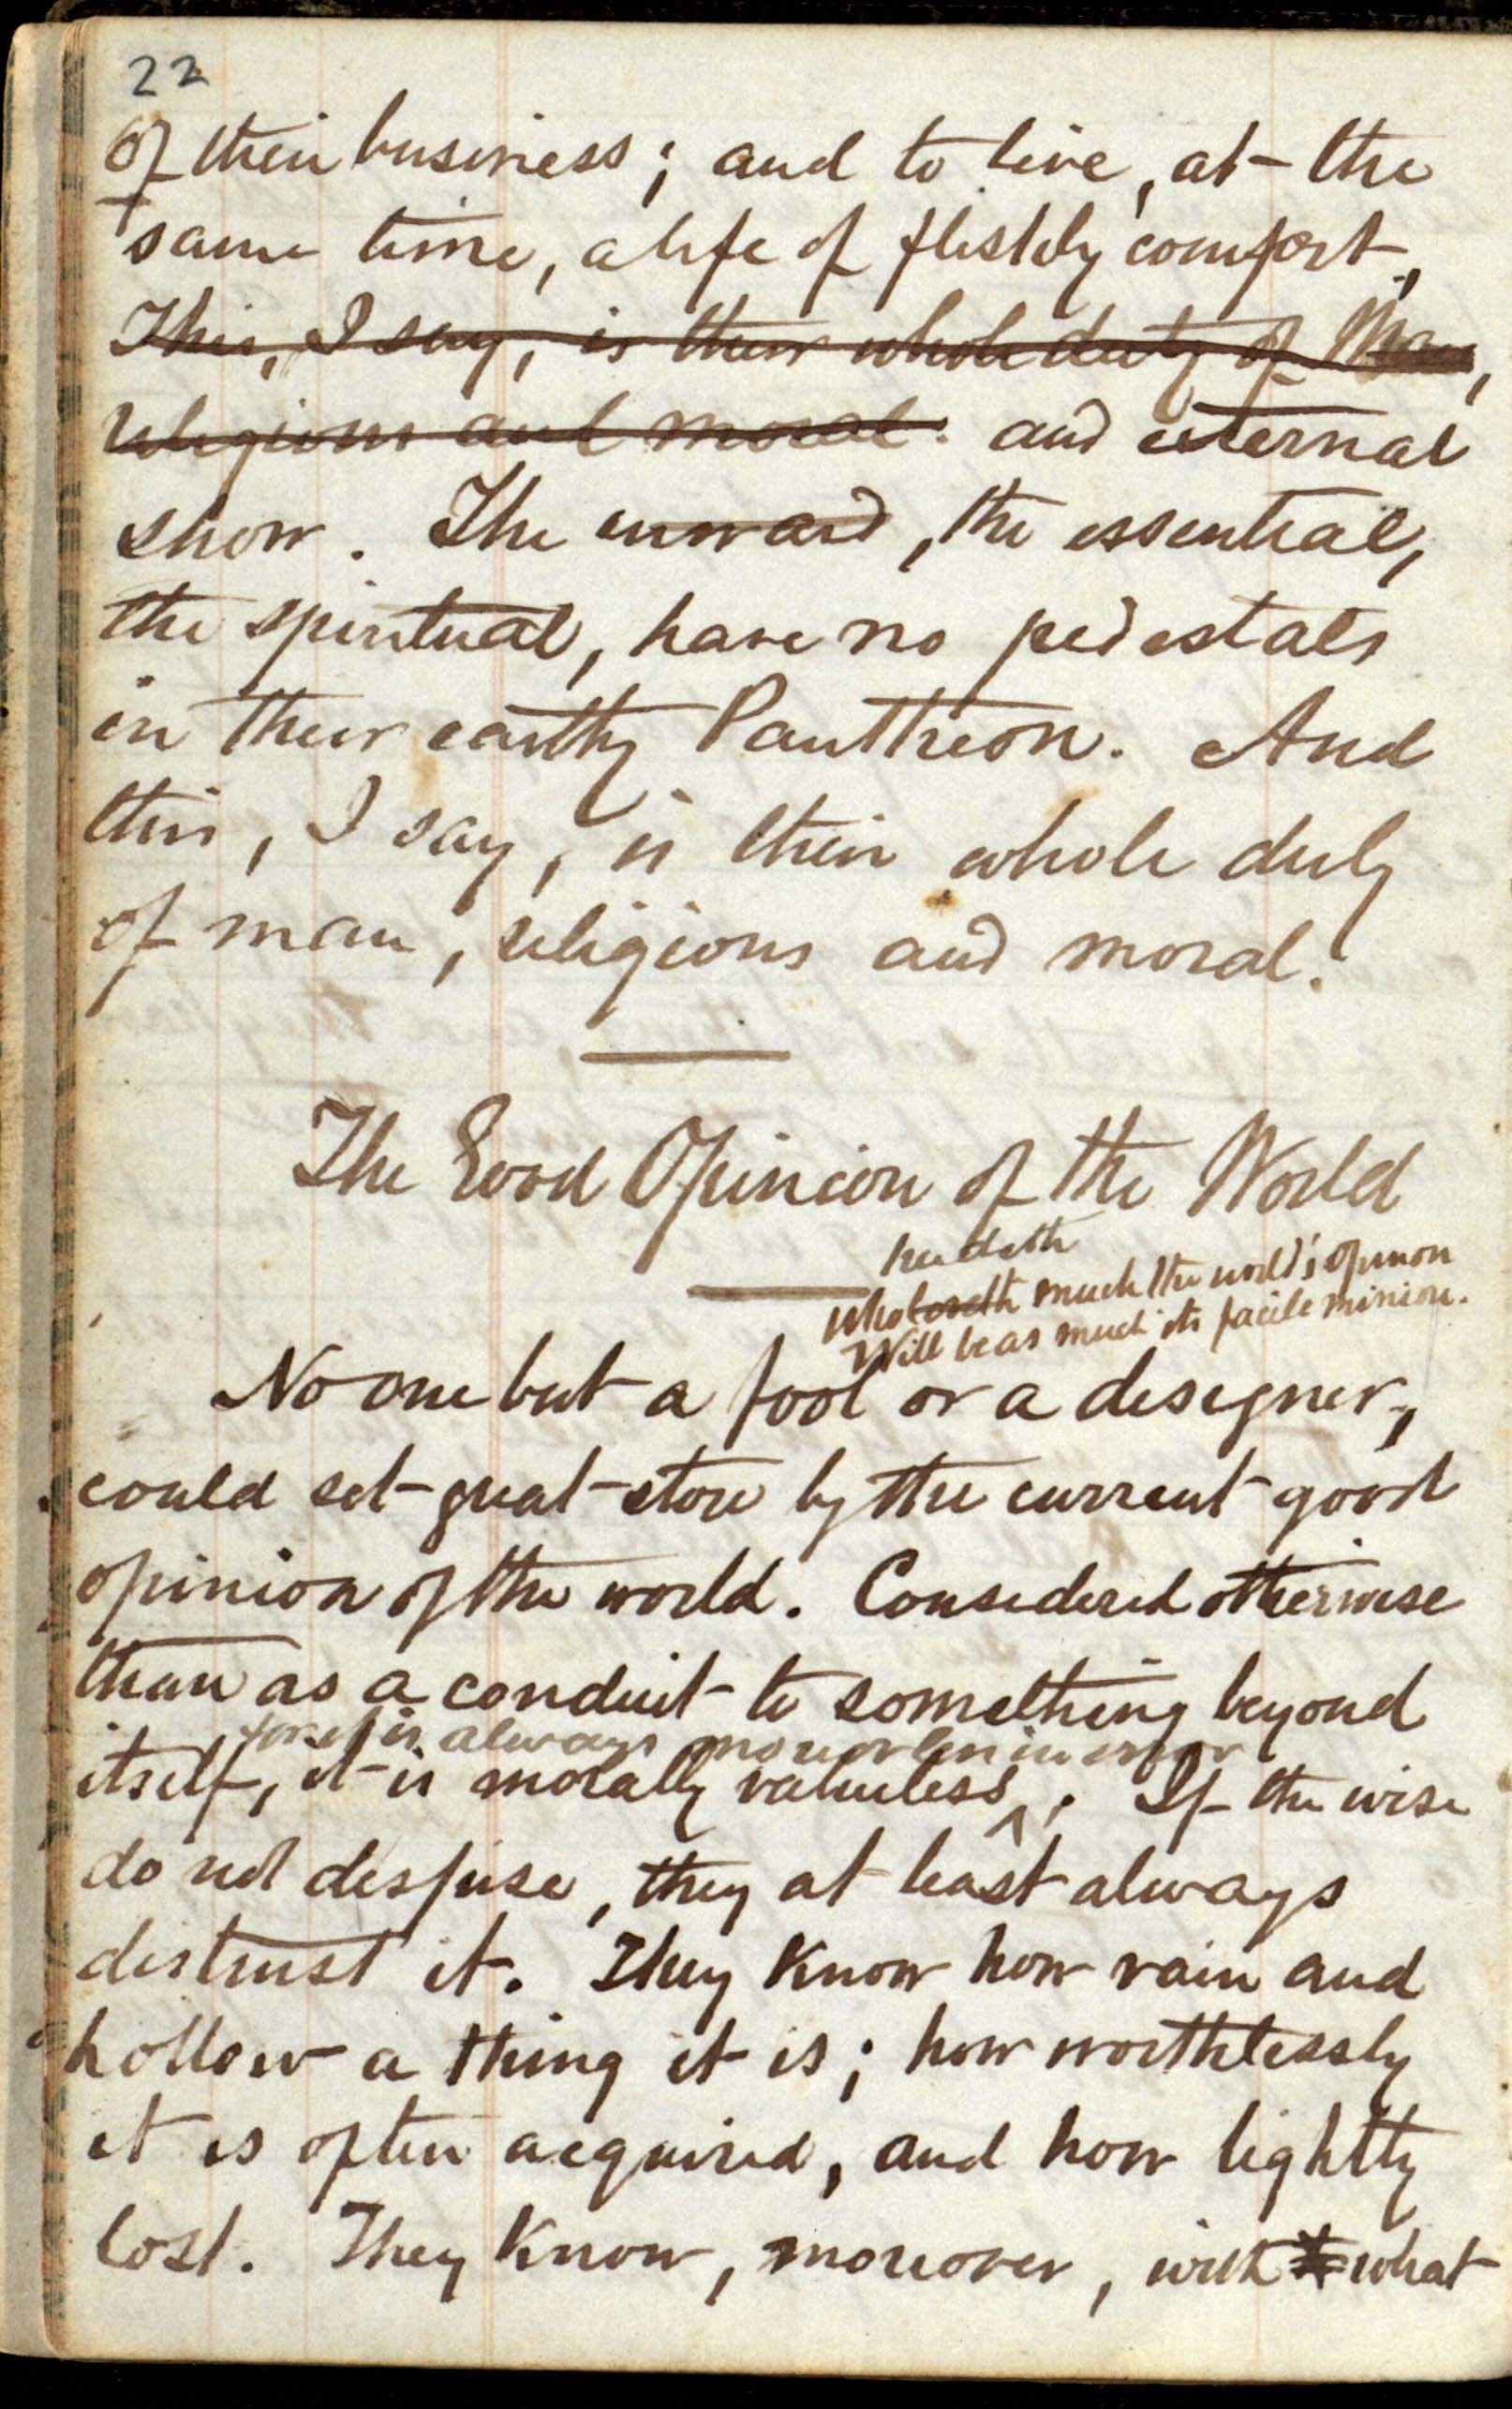 22
of their business; and to live, at the
same time, a life of fleshly comfort,
This, I say, is their whole duty of Man,
religious and moral. and external
show. The inward, the essential,
the spiritual, have no pedestals
in their earthy Pantheon. And
this, I say, is their whole duty
of man, religious and moral.
The Good Opinion of the World
heedeth
Who loveth much the world's opinion
Will be as much its facile minion.
No one but a fool or a designer,
could set great store by the current good
opinion of the world. Considered otherwise
than as a conduit to something beyond
for it is always more or less in error
itself, it is morally valueless ^. If the wise
do not despise, they at least always
distrust it. They know how vain and
hollow a thing it is; how worthlessly
it is often acquired, and how lightly
lost. They know, moreover, with what